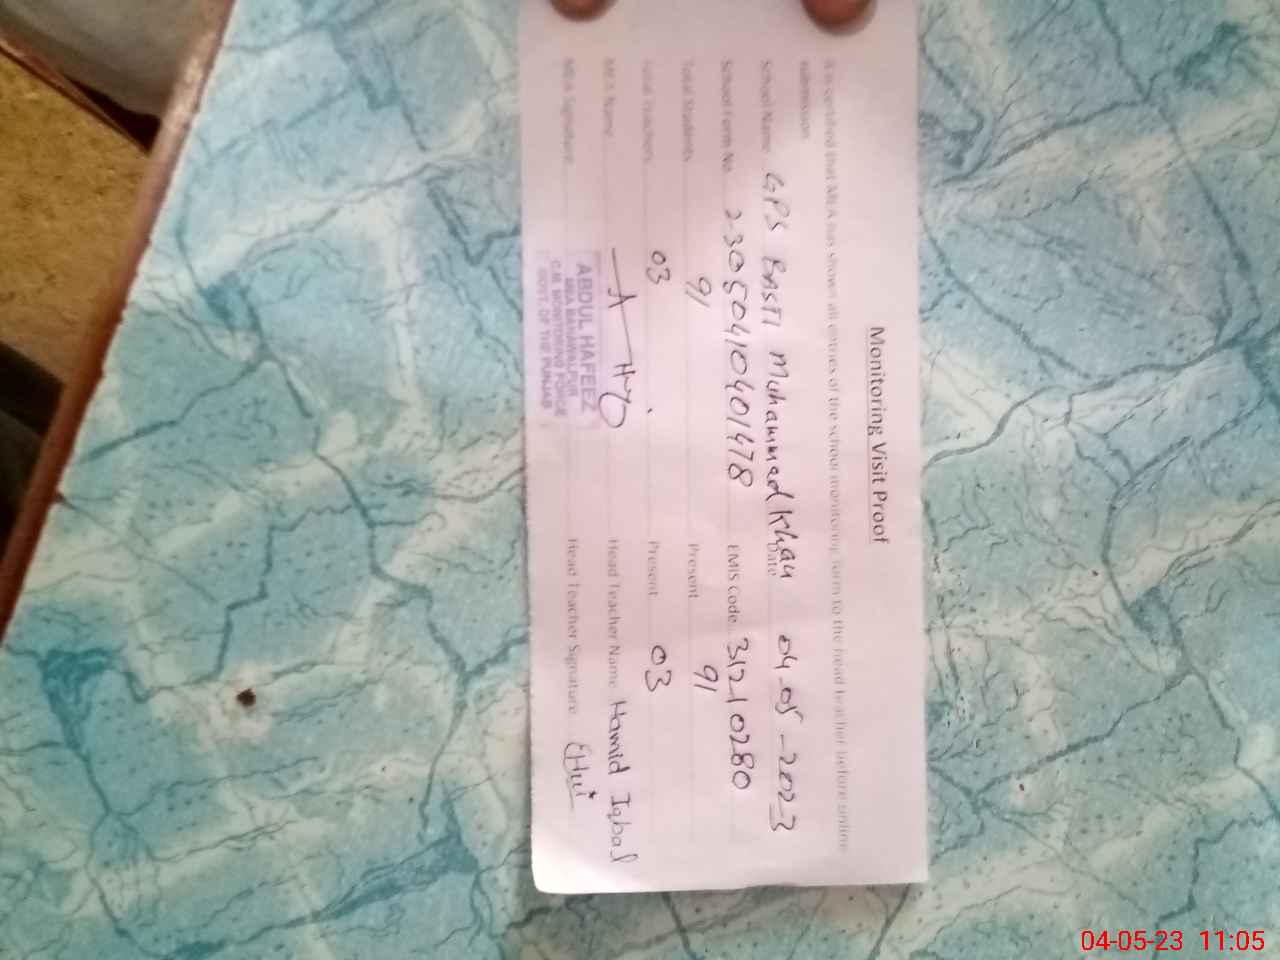 Monitoring Visit Proof
It is certified that MEA has shown all entries of the school monitoring form to the head teacher before online
submission.
School Name GPS BASTI Muhammad Khan Date 04-05-2023
School Form No 23050410401478 EMIS Code 31210280
Total Students 91 Present 91
Total Teachers 03 Present 03
MEA Name Head Teacher Name Hamid Iqbal
MEA Signature Head Teacher Signature
ABDUL HAFEEZ
MEA BAHAWALPUR
C.M. MONITORING FORCE
GOVT. OF THE PUNJAB
04-05-23 11:05